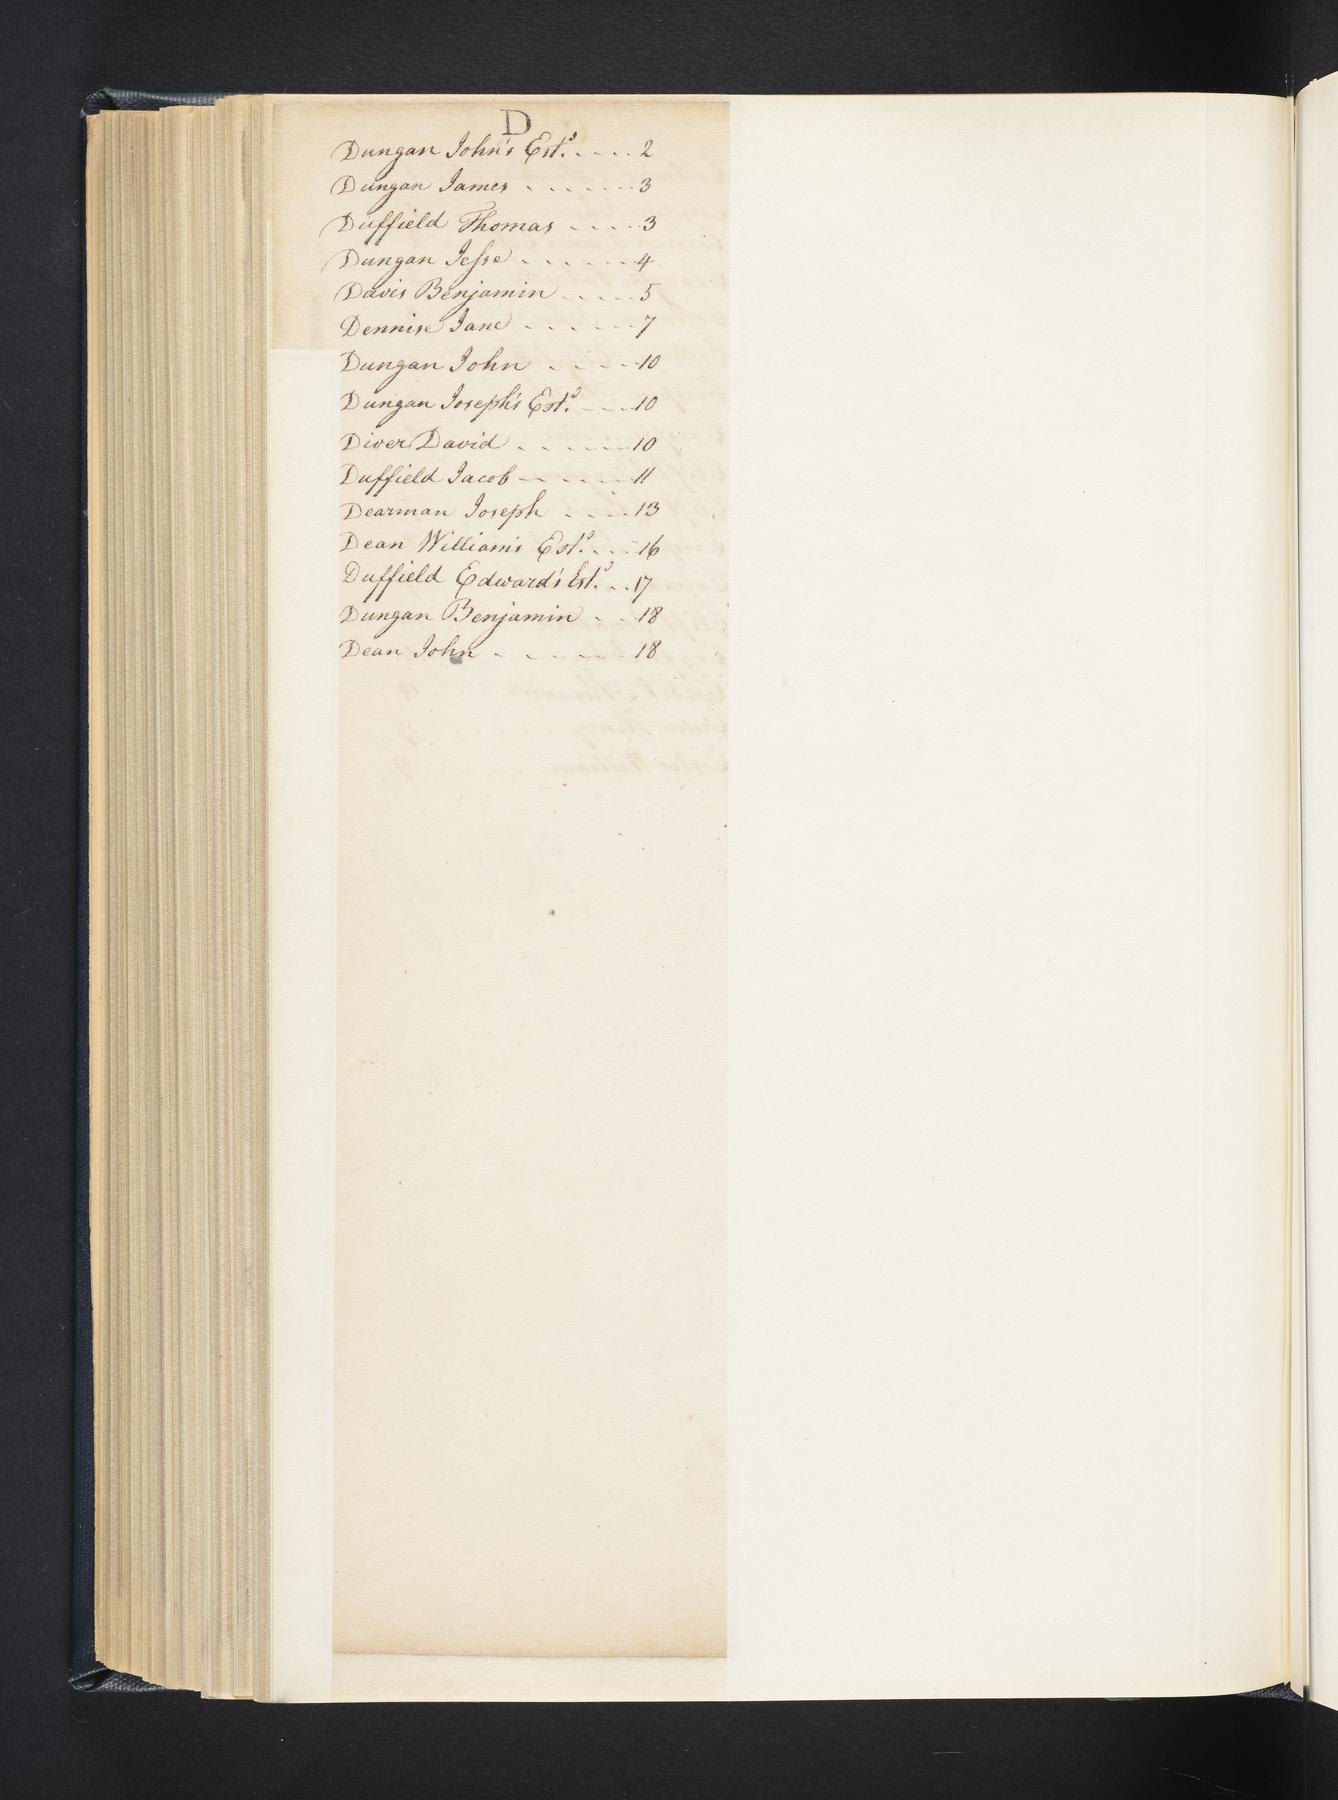 D
Dungan John's Est.^s .... 2
Dungan James ...... 3
Duffield Thomas .... 3
Dungan Jeſse ...... 4
Davis Benjamin ..... 5
Dennise Jane ...... 7
Dungan John .... 10
Dungan Joseph's Est.^s .... 10
Diver David ...... 10
Duffield Jacob ..... 11
Dearman Joseph .... 13
Dean William's Est.^s ... 16
Duffield Edward's Est.^s .. 17
Dungan Benjamin .. 18
Dean John ...... 18